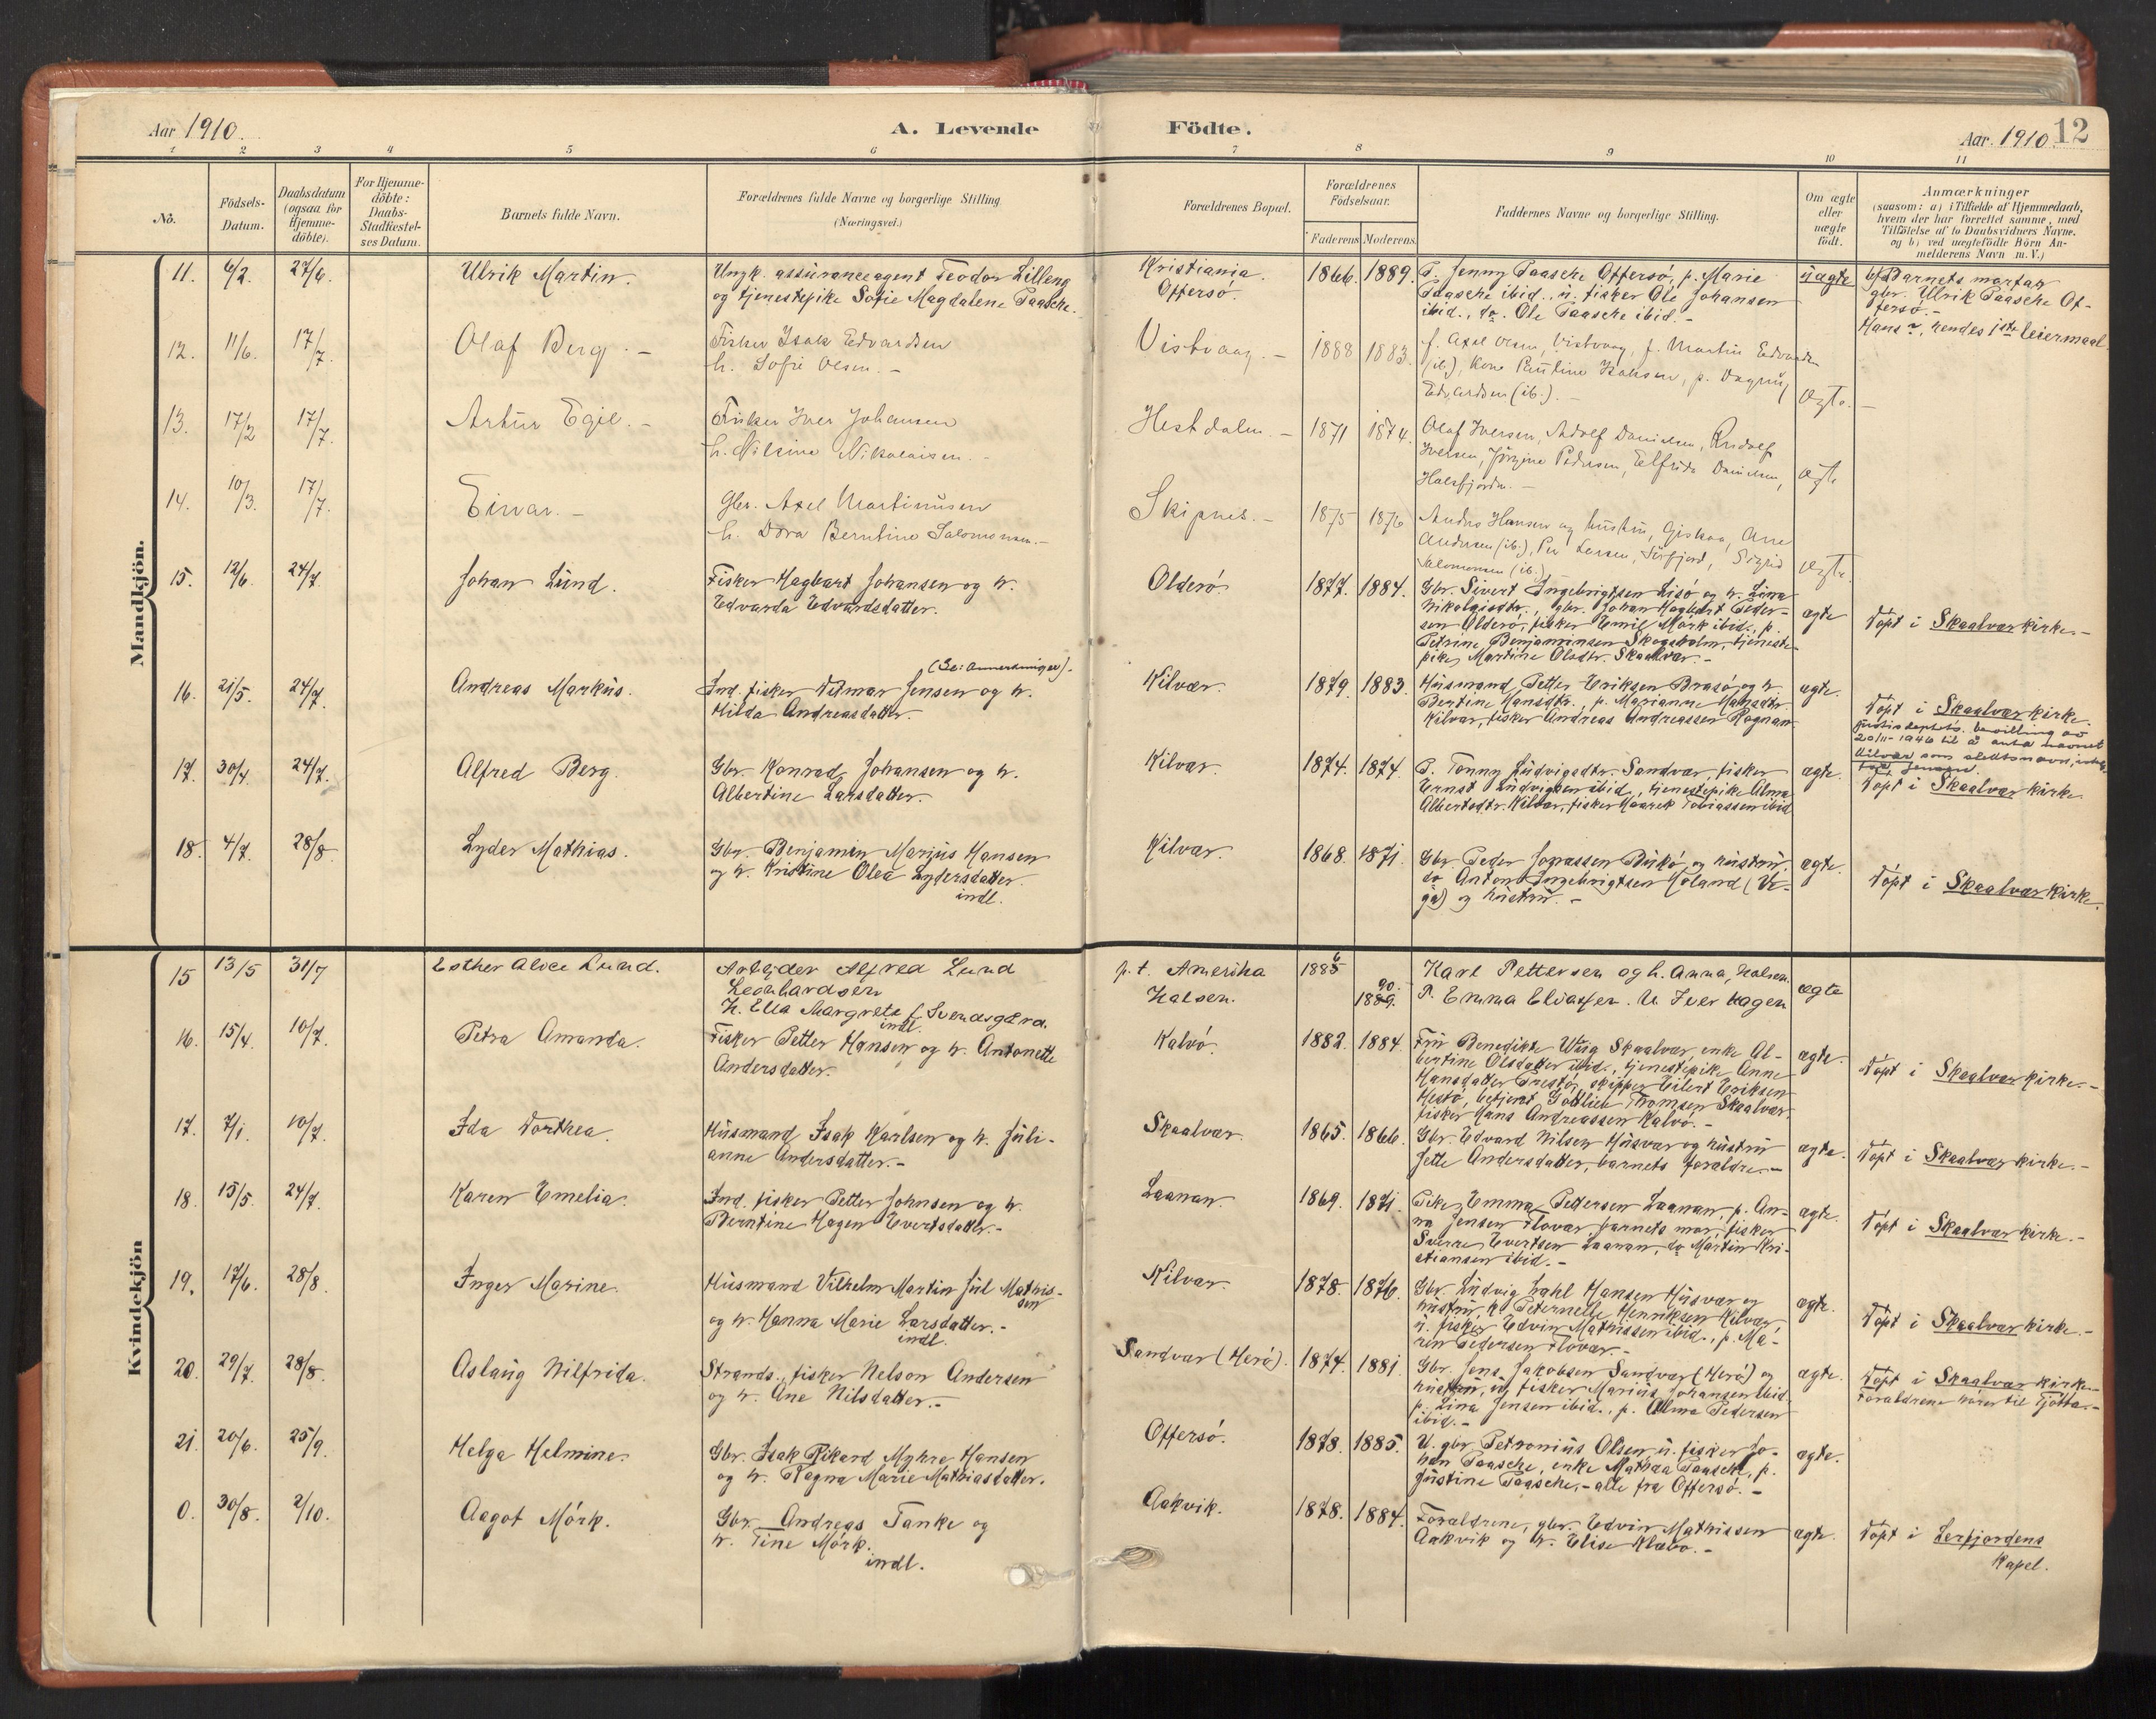 Aar 1910.
A. Levende
Födte.
Aar. 1910.
12
1 2 3 4 5 6 7 8 9 10 11
No.
Födsels-
Datum.
Daabsdatum
(ogsaa for
Hjemme-
döbte).
For Hjemme-
döbte:
Daabs-
Stadfæstel-
ses Datum.
Barnets fulde Navn.
Forældrenes fulde Navne og borgerlige Stilling
(Næringsvei.)
Forældrenes Bopæl.
Forældrenes
Födselsaar.
Faderens Moderens
Faddernes Navne og borgerlige Stilling.
Om ægte
eller
uægte
födt.
Anmærkninger
(saasom: a) i Tilfælde af Hjemmedaab,
hvem der har forrettet samme, med
Tilföielse af to Daabsvidners Navne.
og b) ved uægtefödte Börn An-
melderens Navn m. V.)
Mandkjön.
11. 6/2. 27/6. Ulrik Martin.
Ungk. assuranceagent Teodor Lilleng
og tjenestepike Sofie Magdalene Paasche.
Kristiania.
Offersö.
1866. 1889.
P. Jenny Paasche Offersö, p. Marie
Paasche ibid., u. fisker Ole Johansen
ibid., do. Ole Paasche ibid. -
uægte
b) Barnets morfar
gbr. Ulrik Paasche Of-
fersö. -
Hans ?, hendes 1ste leiermaal.
12. 11/6. 17/7. Olaf Berg. -
Fisker Isak Edvardsen
h. Sofie Olsen. -
Vistvaag. -
1888 1883.
f. Axel Olsen, Vistvaag, f. Martin Edvardsen
(ib.), Kone Pauline Isaksen, p. Dagny
Edvardsen (ib.). -
ægte. -
13. 17/2 17/7. Artur Egil. -
Fisker Iver Johansen
h. Nilsine Nikolaisen. -
Hestdalen. -
1871 1874.
Olaf Iversen, Adolf Danielsen, Rudolf
Iversen, Jörgine Pedersen, Elfrida Danielsen,
Halsfjorden. -
ægte
14. 10/3. 17/7. Einar. -
Gbr. Axel Martinusen
h. Dora Berntine Salomonsen. -
Skipnes. -
1875 1876
Anders Hansen og hustru, Gjeskaa, Ane
Andersen (ib.), Per Larsen, Sörfjord, Sigrid
Salomonsen (ib.).
ægte.
15. 12/6. 24/7. Johan Lund.
Fisker Hagbart Johansen og h.
Edvarda Edvardsdatter.
Olderö
1877. 1884.
Gbr. Sivert Ingebrigtsen Lisö og h. Lina
Nikolaisdtr., gbr. Johan Hagbart Peder-
sen Olderö, fisker Emil Mörk ibid., p.
Petrine Benjaminsen Skogsholm, tjeneste-
pike Martine Olsdtr. Skaalvær. -
ægte
Döpt i Skaalvær kirke. -
(Se: anmerkninger).
16. 21/5. 24/7. Andreas Markus.
Ind. fisker Vilmar Jensen og h.
Hilda Andreasdatter.
Kilvær.
1879. 1883.
Husmand Petter Eriksen Brasö og h.
Bertine Hansdtr., p. Marianne Hansdtr.
Kilvær, fisker Andreas Andreassen Rognan
ægte.
Döpt i Skaalvær kirke.
Justisdeptets. bevilling av
20/11-1946 til å anta navnet
Kilvær som slektsnavn, istf.
Jensen.
17. 30/4. 24/7. Alfred Berg.
Gbr. Konrad Johansen og h.
Albertine Larsdatter.
Kilvær.
1874. 1874.
P. Tonny Ludvigsdtr. Sandvær, fisker
Ernst Ludvigsen ibid., tjenestepike Alma
Albertsdtr. Kilvær, fisker Haarek Tobiassen ibid
ægte.
Döpt i Skaalvær kirke.
18. 4/7. 28/8. Lyder Mathias.
Gbr. Benjamin Marius Hansen
og h. Kristine Olea Lydersdatter.
indl.
Kilvær.
1868. 1871.
Gbr. Peder Jonassen Bukö og hustru,
do Anton Ingebrigtsen Höland (Ve-
ga) og hustru. -
ægte.
Döpt i Skaalvær kirke.
Kvindekjön
15 13/5 31/7 Esther Alvce Lund.
Arbejder Alfred Lund
Leonhardsen
h. Ella Margrete f. Svendsgård.
indl.
p.t. Amerika
Halsen.
1885 6
1889. 90.
Karl Pettersen og h. Anna, Halsen
P. Emma Eliassen. U. Iver Hagen
ægte
16. 15/4. 10/7. Petra Amanda.
Fisker Petter Hansen og h. Antonette
Andersdatter.
Kalvö.
1882. 1884.
Fru Benedikte Wiig Skaalvær, enke Al-
bertine Olsdatter ibid., tjenestepike Anne
Hansdatter Prestö, skipper Eilert Eriksen
Hestö, betjent Gottlieb Thomsen Skaalvær
fisker Hans Andreassen Kalvö. -
ægte.
Döpt i Skaalvær kirke. -
17. 7/1. 10/7. Ida Dorthea.
Husmand Isak Karlsen og h. Juli-
anne Andersdatter. -
Skaalvær.
1865. 1866.
Gbr. Edvard Nilsen Husvær og hustru
Jette Andersdatter, barnets forældre. -
ægte.
Döpt i Skaalvær kirke. -
18. 15/5. 24/7. Karen Emelia.
Ind. fisker Petter Johnsen og h.
Berntine Hagen Evertsdatter. -
Laanan.
1869. 1871.
Pike Emma Pettersen Laanan, p. An-
na Jensen Flovær, barnets mor, fisker
Sverre Evertsen Laanan, do Martin Kri-
stiansen ibid. -
ægte.
Döpt i Skaalvær kirke. -
19. 17/6. 28/8. Inger Marine.
Husmand Vilhelm Martin Jul Mathis-
sen
og h. Hanna Marie Larsdatter. -
indl.
Kilvær.
1878. 1876.
Gbr. Ludvig Zahl Hansen Husvær og
hustru, k. Peternelle Henriksen Kilvær,
u. fisker Edvin Mathissen ibid., p. Ma-
ren Pedersen Flovær. -
ægte.
Döpt i Skaalvær kirke. -
20. 29/7. 28/8. Aslaug Wilfrida.
Strands., fisker Nelson Andersen
og h. Ane Nilsdatter. -
Sandvær (Herö).
1874. 1881.
Gbr. Jens Jakobsen Sandvær (Herö) og
hustru, u. fisker Marius Johansen ibid.
p. Lina Jensen ibid., p. Alma Pedersen
ibid. -
ægte.
Döpt i Skaalvær kirke. -
Forældrene hörer til Tjötta. -
21. 20/6. 25/9. Helga Helmine.
Gbr. Isak Rikard Myhre Hansen
og h. Ragna Marie Mathiasdatter.
Offersö.
1878. 1885.
U. gbr. Petronius Olsen, u. fisker Jo-
han Paasche, enke Mathea Paasche, p.
Justine Paasche, - alle fra Offersö. -
ægte.
0. 30/8. 2/10. Aagot Mörk.
Gbr. Andreas Tanke og
h. Tine Mörk.
indl.
Aakvik.
1878. 1884.
Forældrene, gbr. Edvin Mathissen
Aakvik og h. Elise Klævo. -
ægte.
Döpt i Leirfjordens
Kapel.